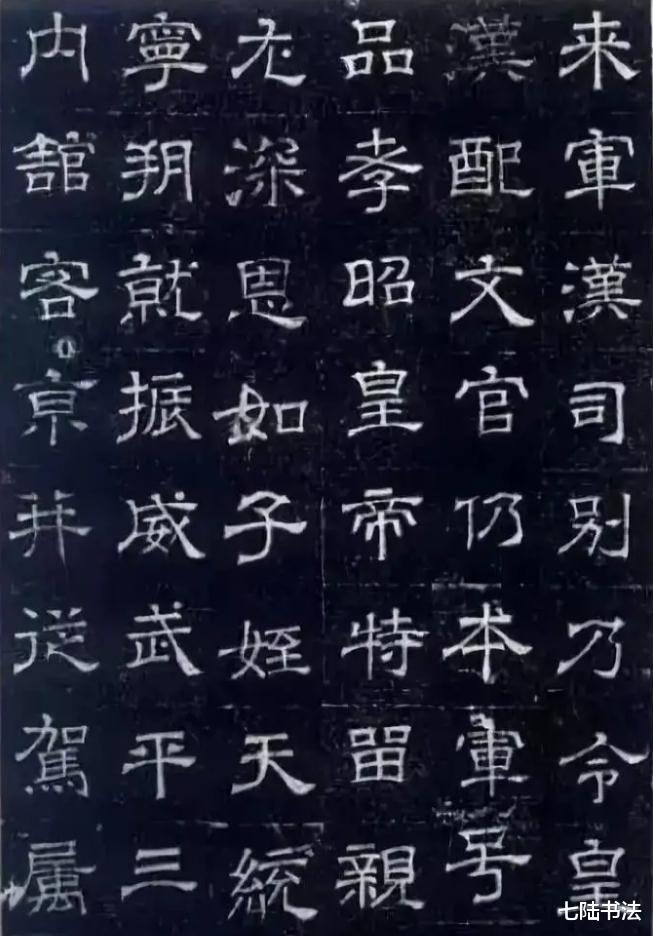 来軍漢司別乃令皇
漢配文官仍本軍号
品孝昭皇帝特留親
尤深恩如子姪天統
寧朔就振威武平三
内舘客亰并従駕属
七陆书法